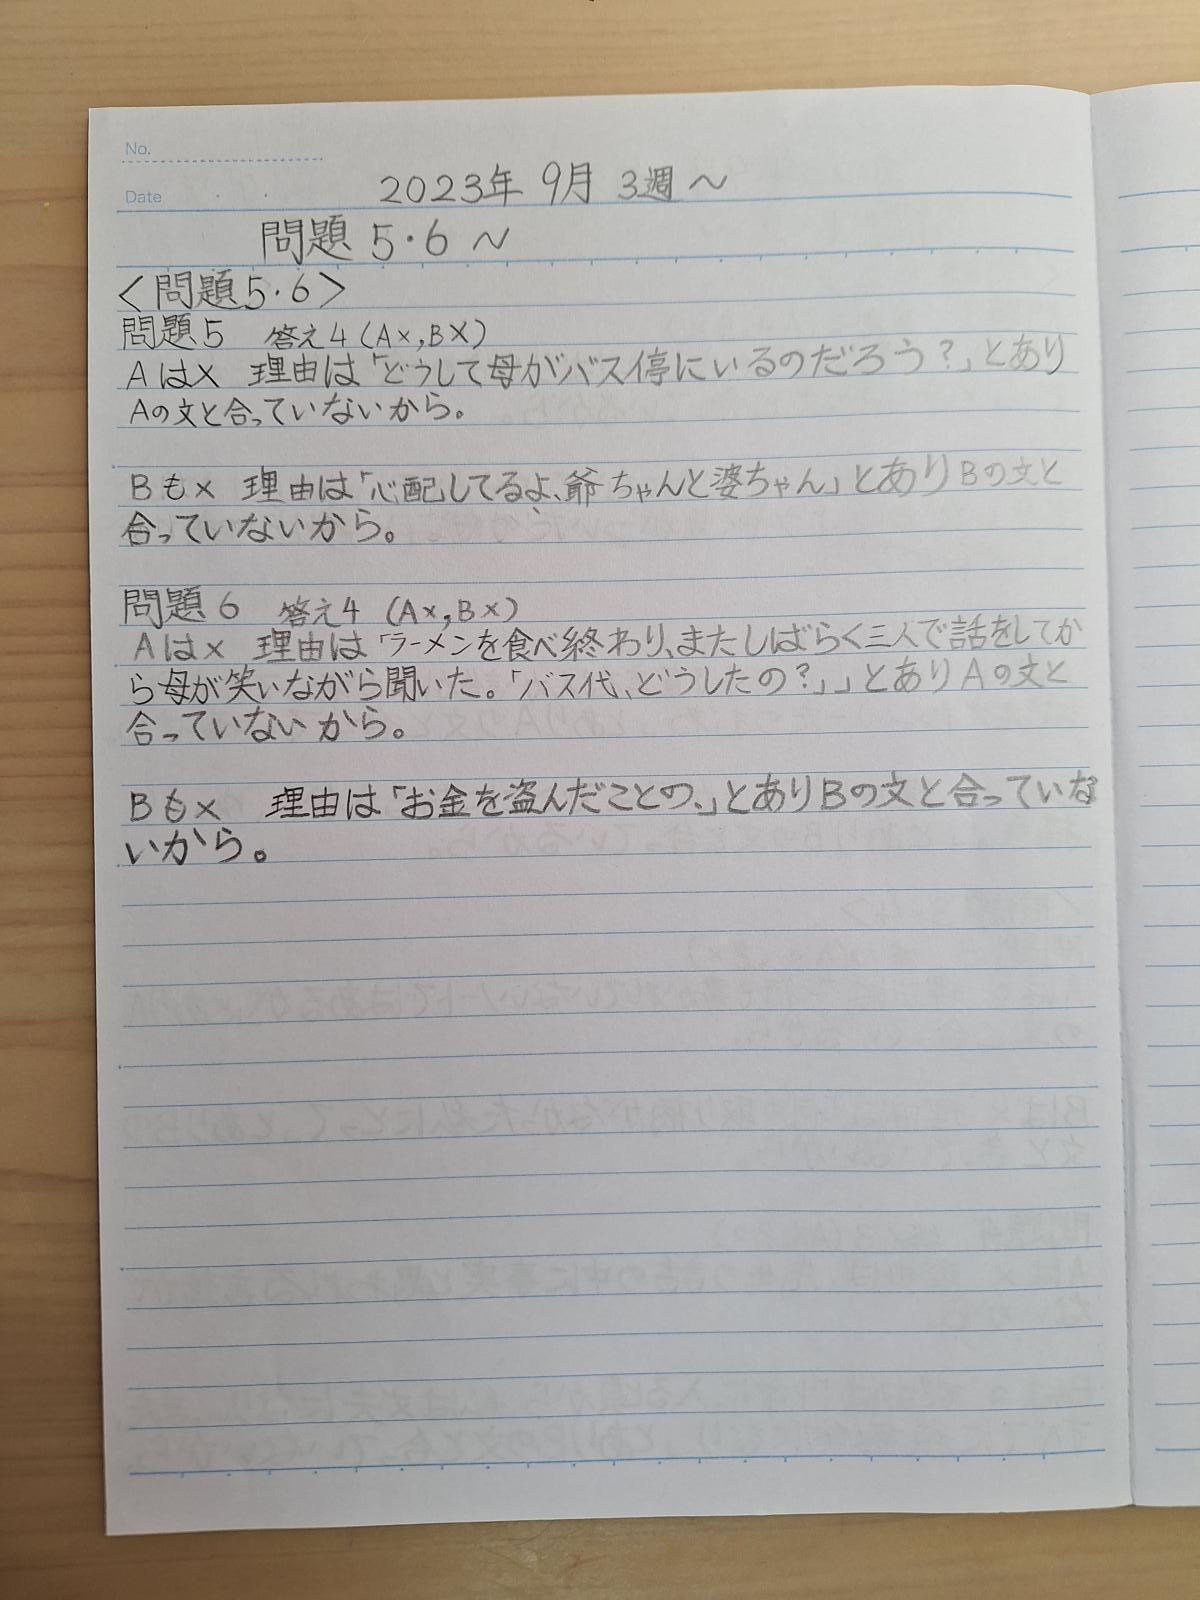 No.
Date
2023年 9月 3週～
問題 5・6 ～
＜問題5・6＞
問題5 答え4（A×,B×）
Aは× 理由は「どうして母がバス停にいるのだろう？」とあり
Aの文と合っていないから。
Bも× 理由は「心配してるよ、爺ちゃんと婆ちゃん」とありBの文と
合っていないから。
問題6 答え4（A×,B×）
Aは× 理由は「ラーメンを食べ終わり、またしばらく三人で話をしてか
ら母が笑いながら聞いた。「バス代、どうしたの？」」とありAの文と
合っていないから。
Bも× 理由は「お金を盗んだことの、」とありBの文と合っていな
いから。